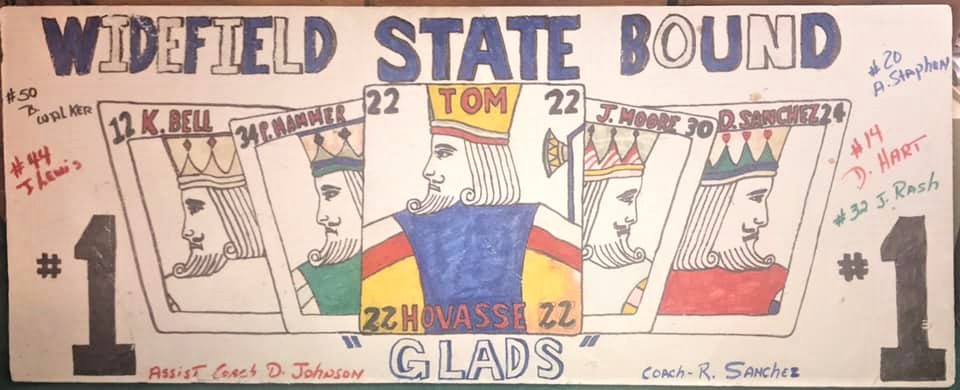 WIDEFIELD STATE BOUND
#50
B.
WALKER
#44
J Lewis
12 K. BELL
34 P. HAMMER
22 TOM 22
J. MOORE 30
D. SANCHEZ 24
#20
A. Staphen
#14
D. HART
#32 J. Rash
# 1
# 1
22 HOVASSE 22
"GLADS"
ASSIST Coach D. JOHNSON
COACH - R. SANCHEZ